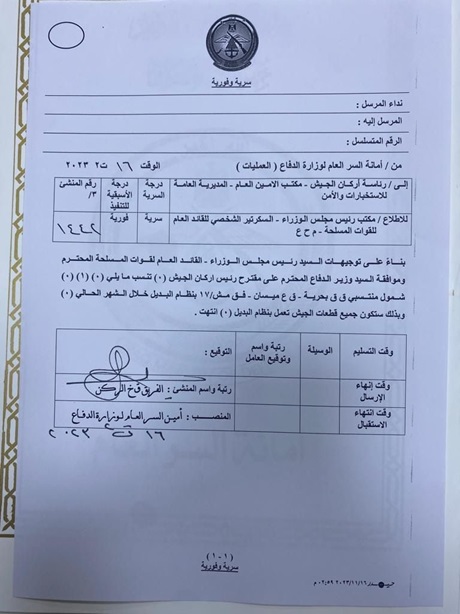 سرية وفورية
نداء المرسل :
المرسل إليه :
الرقم المتسلسل :
من / أمانة السر العام لوزارة الدفاع ( العمليات ) الوقت ١٦ ت٢ ٢٠٢٣
إلى / رئاسة أركان الجيش - مكتب الامين العام - المديرية العامة للاستخبارات والأمن
درجة السرية
درجة الأسبقية للتنفيذ
رقم المنشئ /٣
للاطلاع / مكتب رئيس مجلس الوزراء - السكرتير الشخصي للقائد العام للقوات المسلحة - م ح ع
سرية
فورية
١٤٤٢
بناءً على توجيهات السيد رئيس مجلس الوزراء - القائد العام لقوات المسلحة المحترم
وموافقة السيد وزير الدفاع المحترم على مقترح رئيس اركان الجيش (٠) تنسب ما يلي (٠) (١) (٠)
شمول منتسبي ق ق بحرية - ق ع ميسان - فق مش/١٧ بنظام البديل خلال الشهر الحالي (٠)
وبذلك ستكون جميع قطعات الجيش تعمل بنظام البديل (٠) انتهت .
وقت التسليم
الوسيلة
رتبة واسم وتوقيع العامل
التوقيع :
وقت إنهاء الإرسال
رتبة واسم المنشئ : الفريق ق خ الركن
وقت انتهاء الاستقبال
المنصب : أمين السر العام لوزارة الدفاع
١٦ ت٢ ٢٠٢٣
( ١ - ١ )
سرية وفورية
٢٠٢٣/١١/١٦ ٠٢:٥٩ م